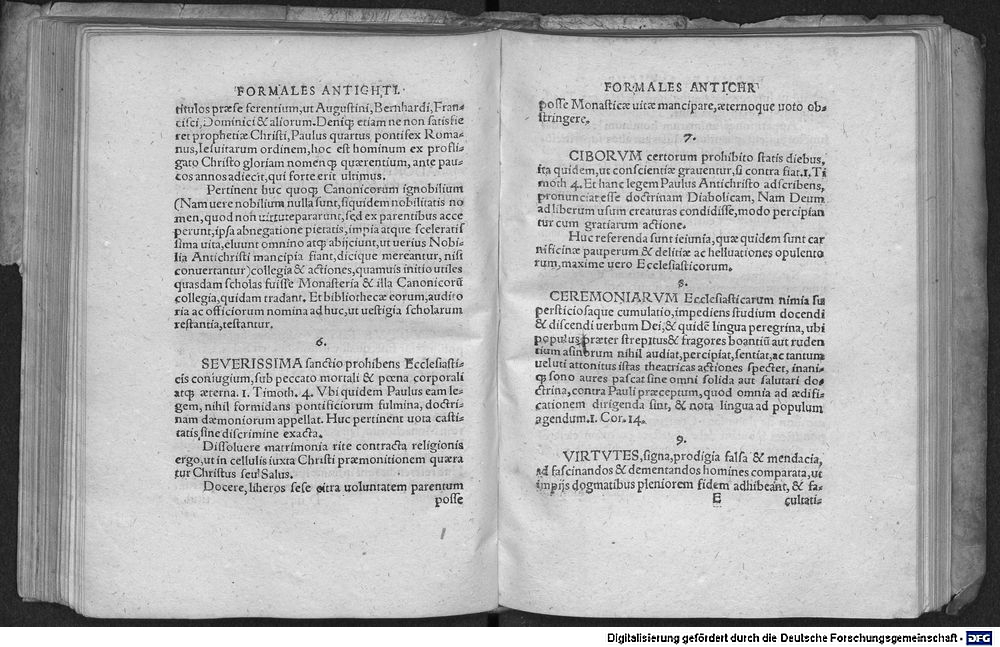 FORMALES ANTICHTI.
titulos præse ferentium, ut Augustini, Bernhardi, Fran-
cisci, Dominici & aliorum. Deniq; etiam ne non satisfie
ret prophetiæ Christi, Paulus quartus pontifex Roma-
nus, Iesuitarum ordinem, hoc est hominum ex profli-
gato Christo gloriam nomenq; quærentium, ante pau-
cos annos adiecit, qui forte erit ultimus.
Pertinent huc quoq; Canonicorum ignobilium
(Nam uere nobilium nulla sunt, siquidem nobilitatis no
men, quod non uirtute pararunt, sed ex parentibus acce
perunt, ipsa abnegatione pietatis, impia atque sceleratis
sima uita, eluunt omnino atq; abijciunt, ut uerius Nobi-
lia Antichristi mancipia fiant, dicique mereantur, nisi
conuertantur) collegia & actiones, quamuis initio utiles
quasdam scholas fuisse Monasteria & illa Canonicorũ
collegia, quidam tradant. Et bibliothecæ eorum, audito
ria ac officiorum nomina ad huc, ut uestigia scholarum
restantia, testantur.
6.
SEVERISSIMA sanctio prohibens Ecclesiasti-
cis coniugium, sub peccato mortali & pœna corporali
atq; æterna. 1. Timoth. 4. Vbi quidem Paulus eam le-
gem, nihil formidans pontificiorum fulmina, doctri-
nam dæmoniorum appellat. Huc pertinent uota casti-
tatis, sine discrimine exacta.
Dissoluere matrimonia rite contracta religionis
ergo, ut in cellulis iuxta Christi præmonitionem quæra
tur Christus seu Salus.
Docere, liberos sese citra uoluntatem parentum
posse
FORMALES ANTICHR
posse Monasticæ uitæ mancipare, æternoque uoto ob-
stringere.
7.
CIBORVM certorum prohibito statis diebus,
ita quidem, ut conscientiæ grauentur, si contra fiat. 1. Ti
moth 4. Et hanc legem Paulus Antichristo adscribens,
pronunciat esse doctrinam Diabolicam, Nam Deum
ad liberum usum creaturas condidisse, modo percipian
tur cum gratiarum actione.
Huc referenda sunt ieiunia, quæ quidem sunt car
nificinæ pauperum & delitiæ ac helluationes opulento
rum, maxime uero Ecclesiasticorum.
8.
CEREMONIARVM Ecclesiasticarum nimia su
perstitiosaque cumulatio, impediens studium docendi
& discendi uerbum Dei, & quidẽ lingua peregrina, ubi
populus præter strepitus & fragores boantiũ aut ruden
tium asinorum nihil audiat, percipiat, sentiat, ac tantum
ueluti attonitus istas theatricas actiones spectet, inani-
q; sono aures pascat sine omni solida aut salutari do-
ctrina, contra Pauli præceptum, quod omnia ad ædifi-
cationem dirigenda sint, & nota lingua ad populum
agendum. 1. Cor. 14.
9.
VIRTVTES, signa, prodigia falsa & mendacia,
ad fascinandos & dementandos homines comparata, ut
impijs dogmatibus pleniorem fidem adhibeant, & fa-
E
cultati-
Digitalisierung gefördert durch die Deutsche Forschungsgemeinschaft - DFG